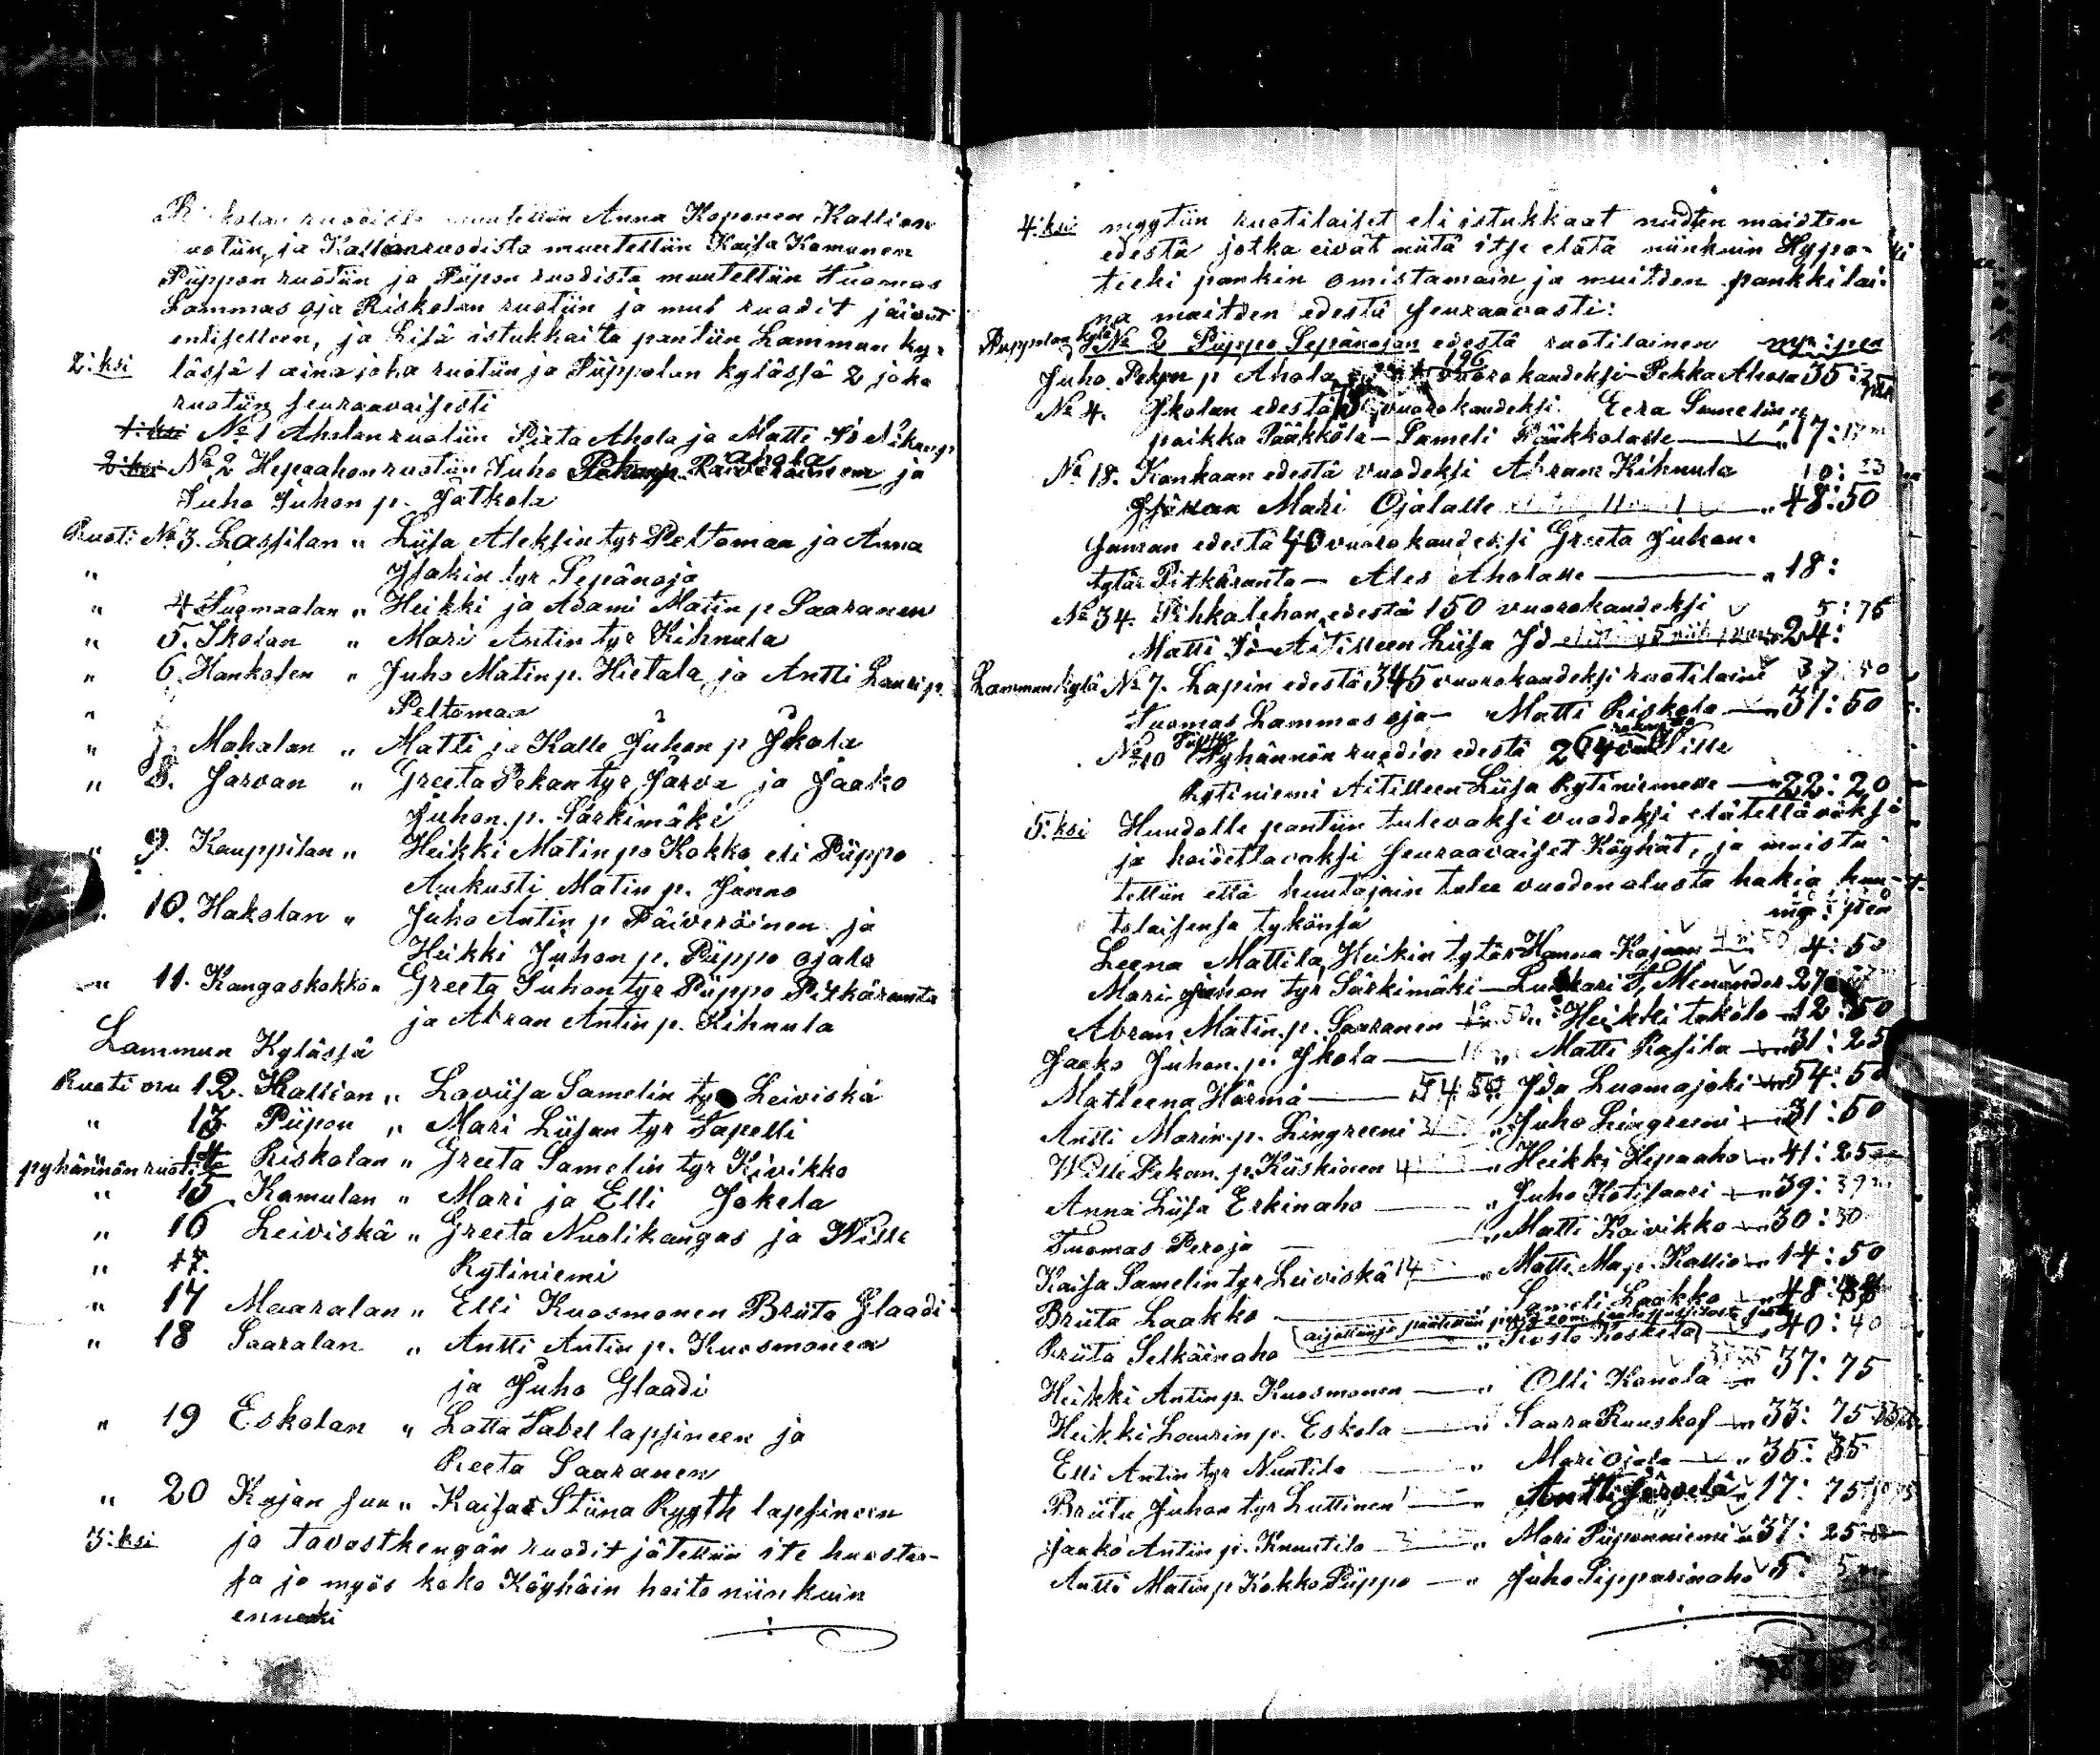 ruodista muutettiin Anna Koponen Kallion
ruotiin, ja Kallionruodista muutettiin Kaisa Kamunen
Piippon ruotiin ja Piipon ruodista muutettiin Tuomas
Lammas oja Riskolan ruotiin ja muut ruodit jäivät
entiselleen, ja Lisä istukkaita pantiin Lammun ky-
2:ksi lässä 1 aina joka ruotiin ja Piippolan kylässä 2 joka
ruotiin seuraavaisesti
1:ksi No 1 Aholan ruotiin Pirta Ahola ja Matti
2:ksi No 2 Hepaahon ruotiin Juho Ahola ja
Juho Juhon p. Jatkola
Ruoti No 3. Lassilan " Liisa Aleksin tyr Peltomaa ja Anna
" Isakin tyr Sepänoja
" 4 Tuomaalan " Heikki ja Adami Matin p Saaranen
" 5. Ikolan " Mari Antin tyr Kihnula
" 6. Hankosen " Juho Matin p. Hietala, ja Antti Laurip.
" Peltomaa
" 7. Mahalan " Matti ja Kalle Juhon p Ikola
" 8. Järvan " Greeta Pekan tyr Järva ja Jaako
Juhon. p. Särkimäki
" 9. Kauppilan " Heikki Matin po Kokko eli Piippo
Aukusti Matin p. Junno
" 10. Hakolan " Juho Antin p Päiveröinen ja
Heikki Juhon p. Piippo ojala
" 11. Kangaskokko " Greeta Juhon tyr Piippo Pitkäranta
ja Abran Antin p. Kihnula
Lammun Kylässä
Ruoti nro 12. Kallion " Loviisa Samelin tyr Leiviskä
" 13 Piipon " Mari Liisan tyr Tapelli
pyhännön ruoti 14 Riskolan " Greeta Samelin tyr Kivikko
" 15 Kamulan " Mari ja Elli Jokela
" 16 Leiviskä " Greeta Nuolikangas ja Wille
" 17. Rytiniemi
" 17 Maaralan " Elli Kuosmonen Briita Glaadi
" 18 Saaralan " Antti Antin p. Kuosmonen
ja Juho Glaadi
" 19 Eskolan " Lotta Sabel lapsineen ja
Reeta Saaranen
" 20 Kajan suu " Kaisa Stiina Rygth lapsineen
3:ksi ja tavastkengän ruodit jätettiin ite huosta-
sa ja myös koko Köyhäin hoito niinkuin
ennenki
4:ksi myytiin ruotilaiset eli istukkaat niidten maidten
edestä jotka eivät niitä itse elätä niinkuin Hypo-
teeki pankin omistamain ja muitden pankkilai-
na maitden edestä seuraavasti:
Piippolan kylä No 2 Piippo Sepänojan edestä ruotilainen
Juho Pekan p Ahola 196 vuorokaudeksi Pekka Ahola 35:
No 4. Ikolan edestä vuorokaudeksi Eera Samelin p
poikka Pääkkölä — Sameli Pääkkölalle — " 17:
No 18. Kankaan edestä vuodeksi Abram Kihnula 10:
Mari Ojalalle " 48:50
Junnan edestä 40 vuorokaudeksi Greeta Juhon
tytär Pitkäranta — Ales Aholalle — " 18:
No 34. Pihkalehon edestä 150 vuorokaudeksi 5:75
Matti Äitilleen Liisa 24:
Lammun kylä No 7. Lapin edestä 345 vuorokaudeksi ruotilaine 37:50
Tuomas Lammas oja — Matti Riskola — " 31:50
No 10 Pyhännön ruodin edestä Wille
Rytiniemi Äitilleen Liisa Rytiniemelle — " 22:20
5:ksi Huudolle pantiin tulevaksi vuodeksi elätettäväksi
ja hoidettavaksi seuraavaiset Köyhät, ja muistu-
tettiin että huutajain tulee vuoden alusta hakia huu-
tolaisensa tykönsä
Leena Mattila, Heikin tytär Hanna Kajaan 4:50
Mari Juhon tyr Särkimäki — Luk kari F, Menander 27:
Abran Matin. p. Saaranen — " Heikki takalo — 12:50
Jaako Juhon. p. Ikola — " Matti Rasila — 31:25
Matleena Härmä — 54 50 " Ida Luomajoki — 54:50
Antti Marin. p. Lingreeni " Juho Lingreeni — 31:50
Wille Pekan. p. Kiiskinen " Heikki Hepaaho — 41:25
Anna Liisa Erkinaho — " Juho Kotisaari — " 39:39
Tuomas Peroja — " Matti Kaivikko — 30:30
Kaisa Samelin tyr Leiviskä 14 " Matti Ma p. Kallio — 14:50
Briita Laakko — Sameli Laakko — " 48:
Briita Selkäinaho — " Kusto Koskela — " 40:40
Heikki Antin p. Kuosmonen — " Olli Kanala — " 37:75
Heikki Laurin p. Eskola — " Saara Ruuskas — " 33:75
Elli Antin tyr Nuutila — " Mari Ojala — " 35:35
Briita Juhon tyr Luttinen — " Antti Järvelä " 17:75
Jaako Antin p. Knuutila — " Mari Piiponniemi " 37:25
Antti Matin p Kokko Piippo — " Juho Sipparinaho 5: